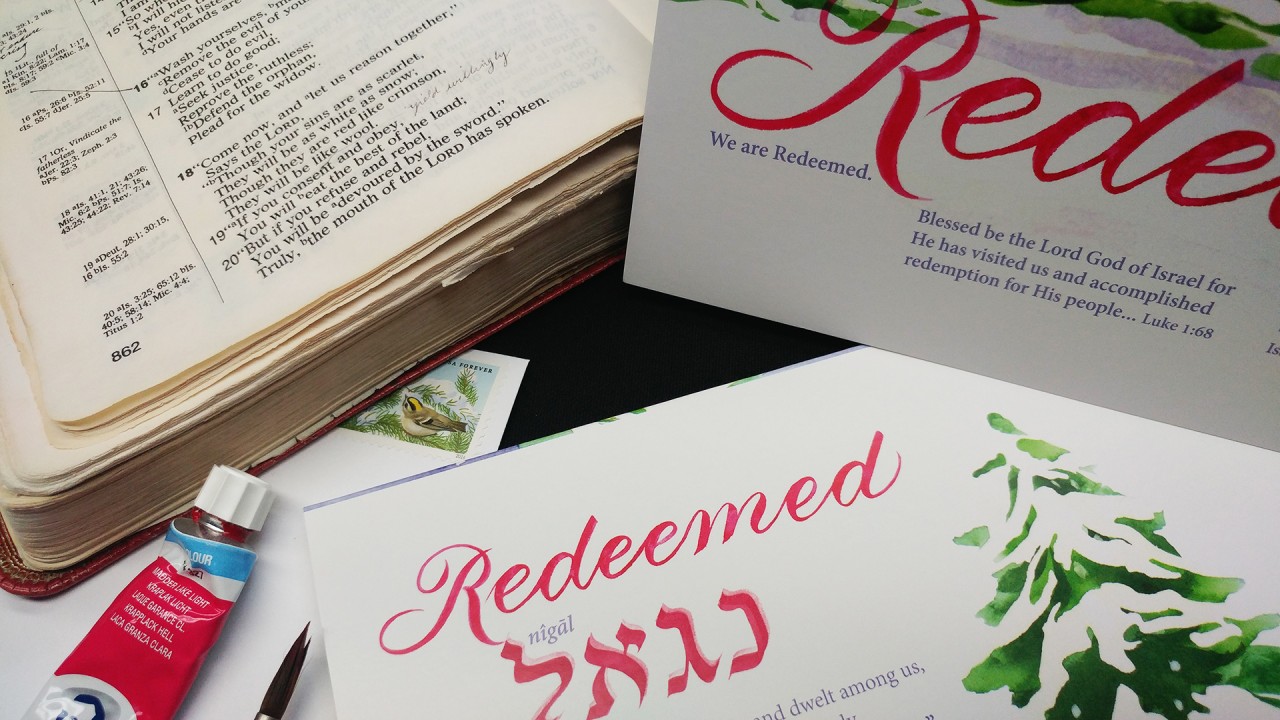 15
Your hands are
16 "Wash yourselves,
Remove the evil of your
Cease to do good;
Learn to do good;
17
Seek justice,
Reprove the ruthless;
Defend the orphan,
Plead for the widow.
18 "Come now, and let us reason together,"
Says the LORD,
"Though your sins are as scarlet,
They will be as white as snow;
Though they are red like crimson,
They will be like wool.
19 "If you consent and obey,
You will eat the best of the land;
20 "But if you refuse and rebel,
You will be devoured by the sword."
Truly, the mouth of the LORD has spoken.
yield willingly
17 ¹Or, Vindicate the
fatherless
aJer. 22:3; Zeph. 2:3
bPs. 82:3
18 aIs. 41:1, 21; 43:26;
Mic. 6:2 bPs. 51:7; Is.
43:25; 44:22; Rev. 7:14
19 aDeut. 28:1; 30:15,
16 bIs. 55:2
20 aIs. 3:25; 65:12 bIs.
40:5; 58:14; Mic. 4:4;
Titus 1:2
862
We are Redeemed.
Blessed be the Lord God of Israel for
He has visited us and accomplished
redemption for His people... Luke 1:68
FOREVER
Redeemed
nîgāl
נגאל
and dwelt among us,
MADDER LAKE LIGHT
KRAPLAK LICHT
LAQUE GARANCE CL.
KRAPPLACK HELL
LACA GRANZA CLARA